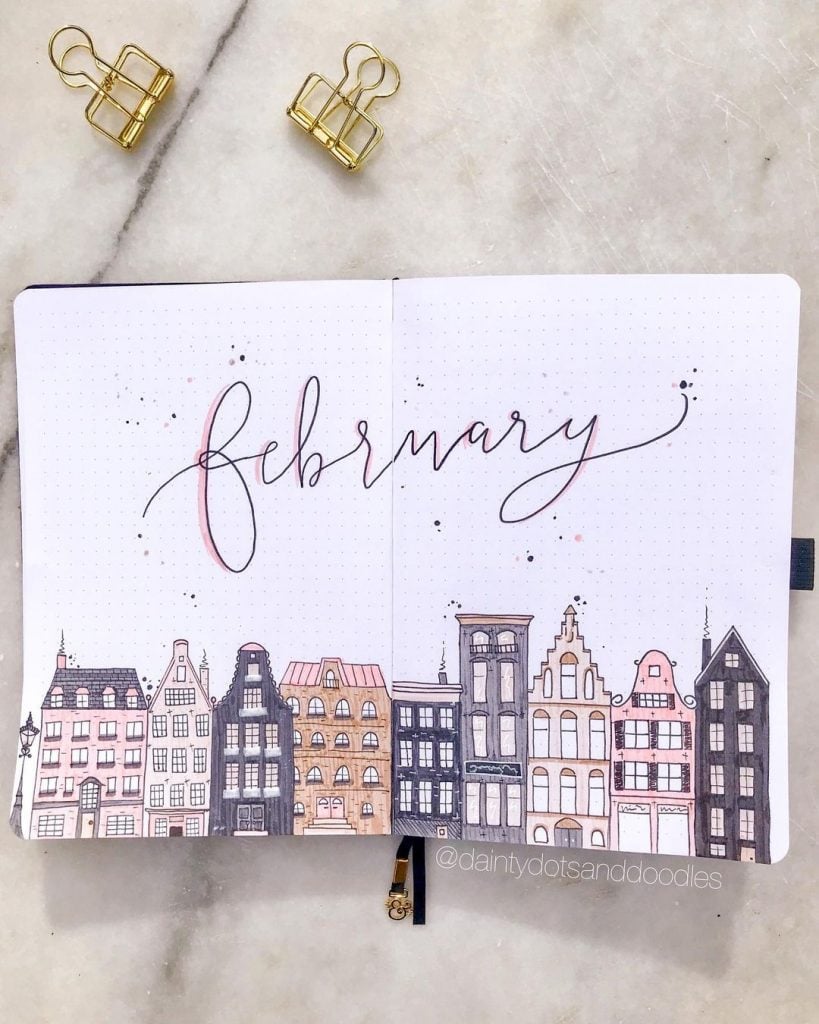 february
@daintydotsanddoodles
&